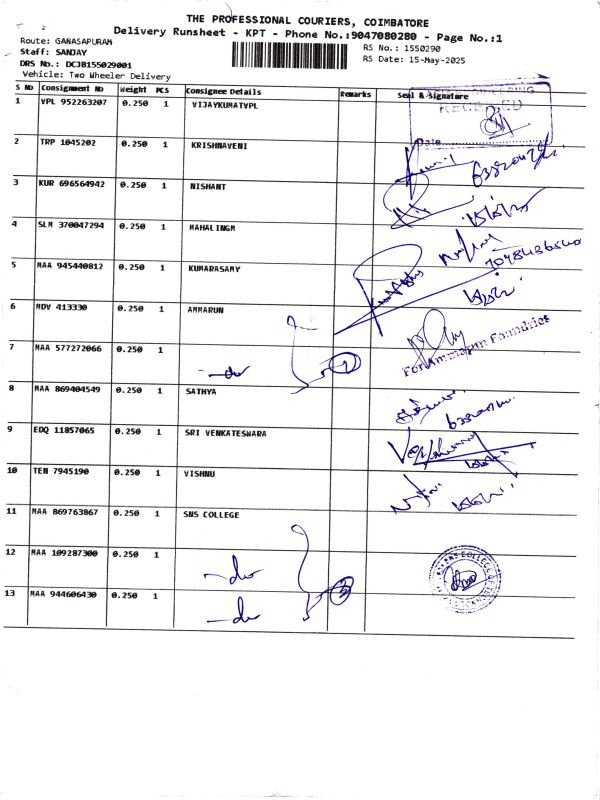 THE PROFESSIONAL COURIERS, COIMBATORE
Delivery Runsheet - KPT - Phone No.:9047080280 - Page No.:1
Route: GANASAPURAM
Staff: SANJAY
DRS No.: DCJB155029001
Vehicle: Two Wheeler Delivery
RS No.: 1550290
RS Date: 15-May-2025
S No Consignment No Weight PCS Consignee Details Remarks Seal & Signature
1 VPL 952263207 0.250 1 VIJAYKUMATVPL
Date
2 TRP 1045202 0.250 1 KRISHNAVENI
3 KUR 696564942 0.250 1 NISHANT
4 SLM 370047294 0.250 1 MAHALINGM
5 MAA 945440812 0.250 1 KUMARASAMY
6 MDV 413330 0.250 1 AMMARUN
For Ammarun Foundries
7 MAA 577272066 0.250 1 -do
8 MAA 869404549 0.250 1 SATHYA
9 EDQ 11857065 0.250 1 SRI VENKATESWARA
10 TEN 7945190 0.250 1 VISHNU
11 MAA 869763867 0.250 1 SNS COLLEGE
12 MAA 109287300 0.250 1 -do 3
13 MAA 944606430 0.250 1 -do